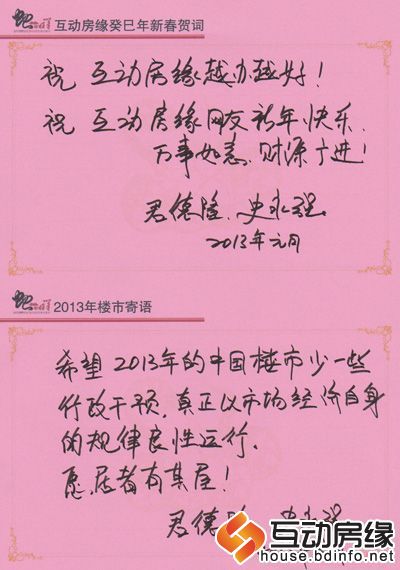 互动房缘癸巳年新春贺词
祝 互动房缘越办越好！
祝 互动房缘网友新年快乐、
万事如意、财源广进！
君德隆、史永强
2013年元月
2013年楼市寄语
希望2013年的中国楼市少一些
行政干预，真正以市场经济自身
的规律良性运行、
愿居者有其屋！
君德隆 史永强
互动房缘
house.bdinfo.net